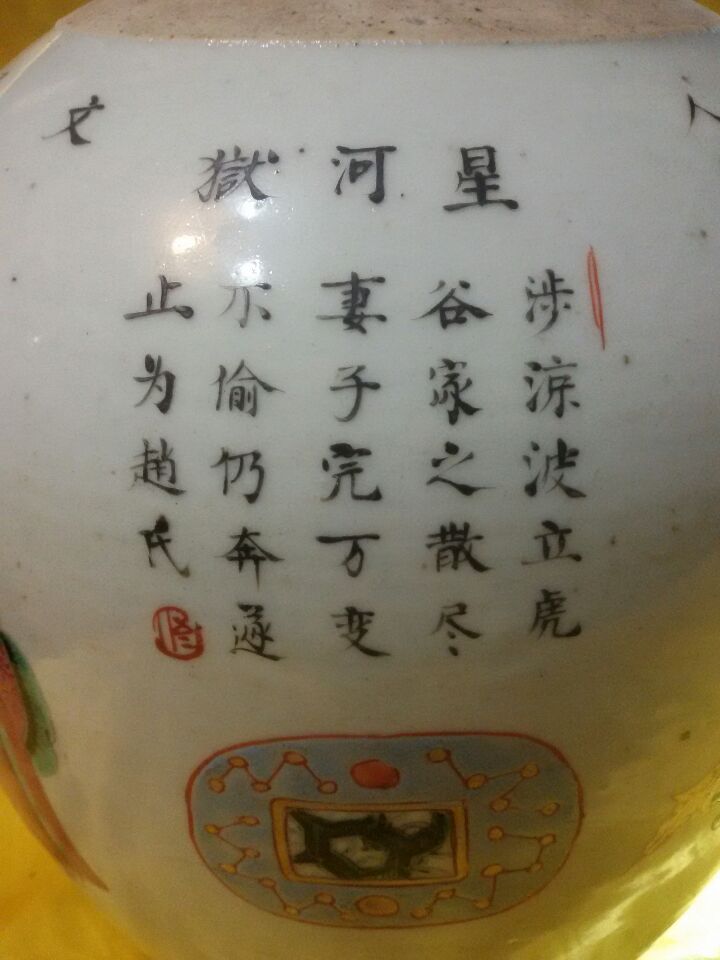 星河獄
涉涼波立虎
谷家之散尽
妻子完万变
不偷仍奔遂
止为趙氏